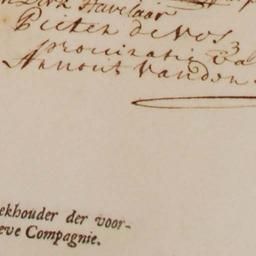 Dirk Havelaar
Pieter de Vos
procuratie va
Arnout vanden
ekhouder der voor-
eve Compagnie.